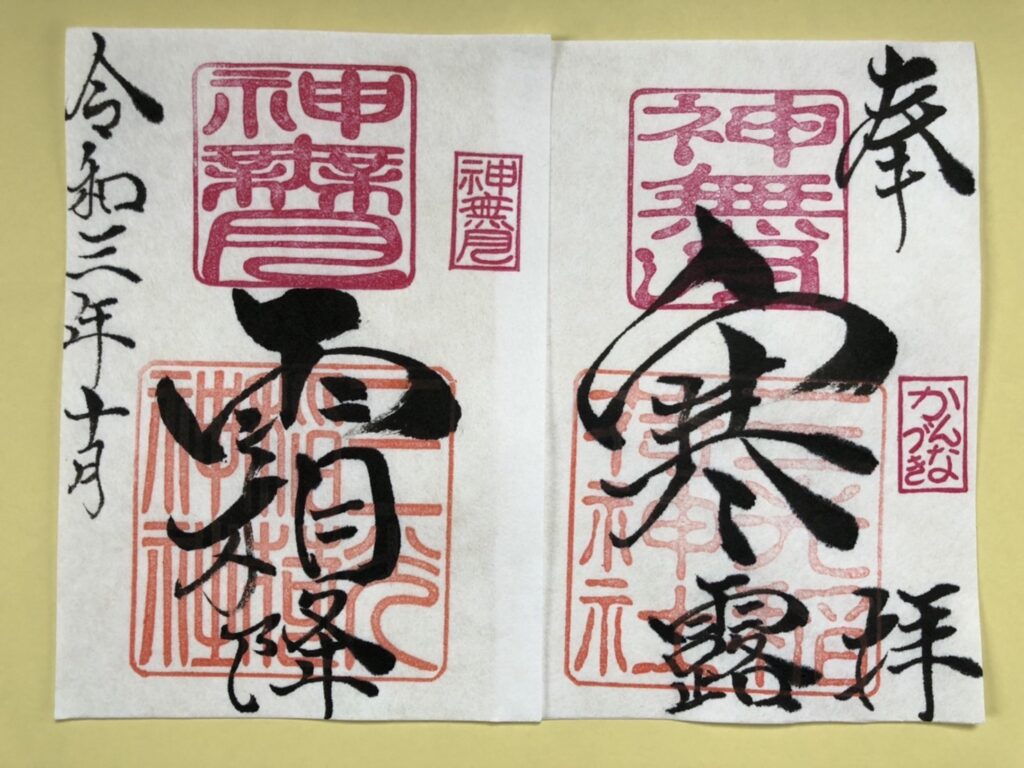 奉拝
神無月
寒露
かんなづき
神無月
神無月
霜降
令和三年十月